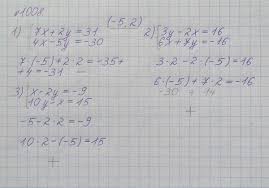 №1008
(-5,2)
1) {7x+2y=31
4x-5y=-30
7·(-5)+2·2=-35+
+4=-31 -
2) {3y-2x=16
6x+7y=-16
3·2-2·(-5)=16
6·(-5)+7·2=-16
-30 + 14
+
3) {x-2y=-9
10y-x=15
-5-2·2=-9
10·2-(-5)=15
+